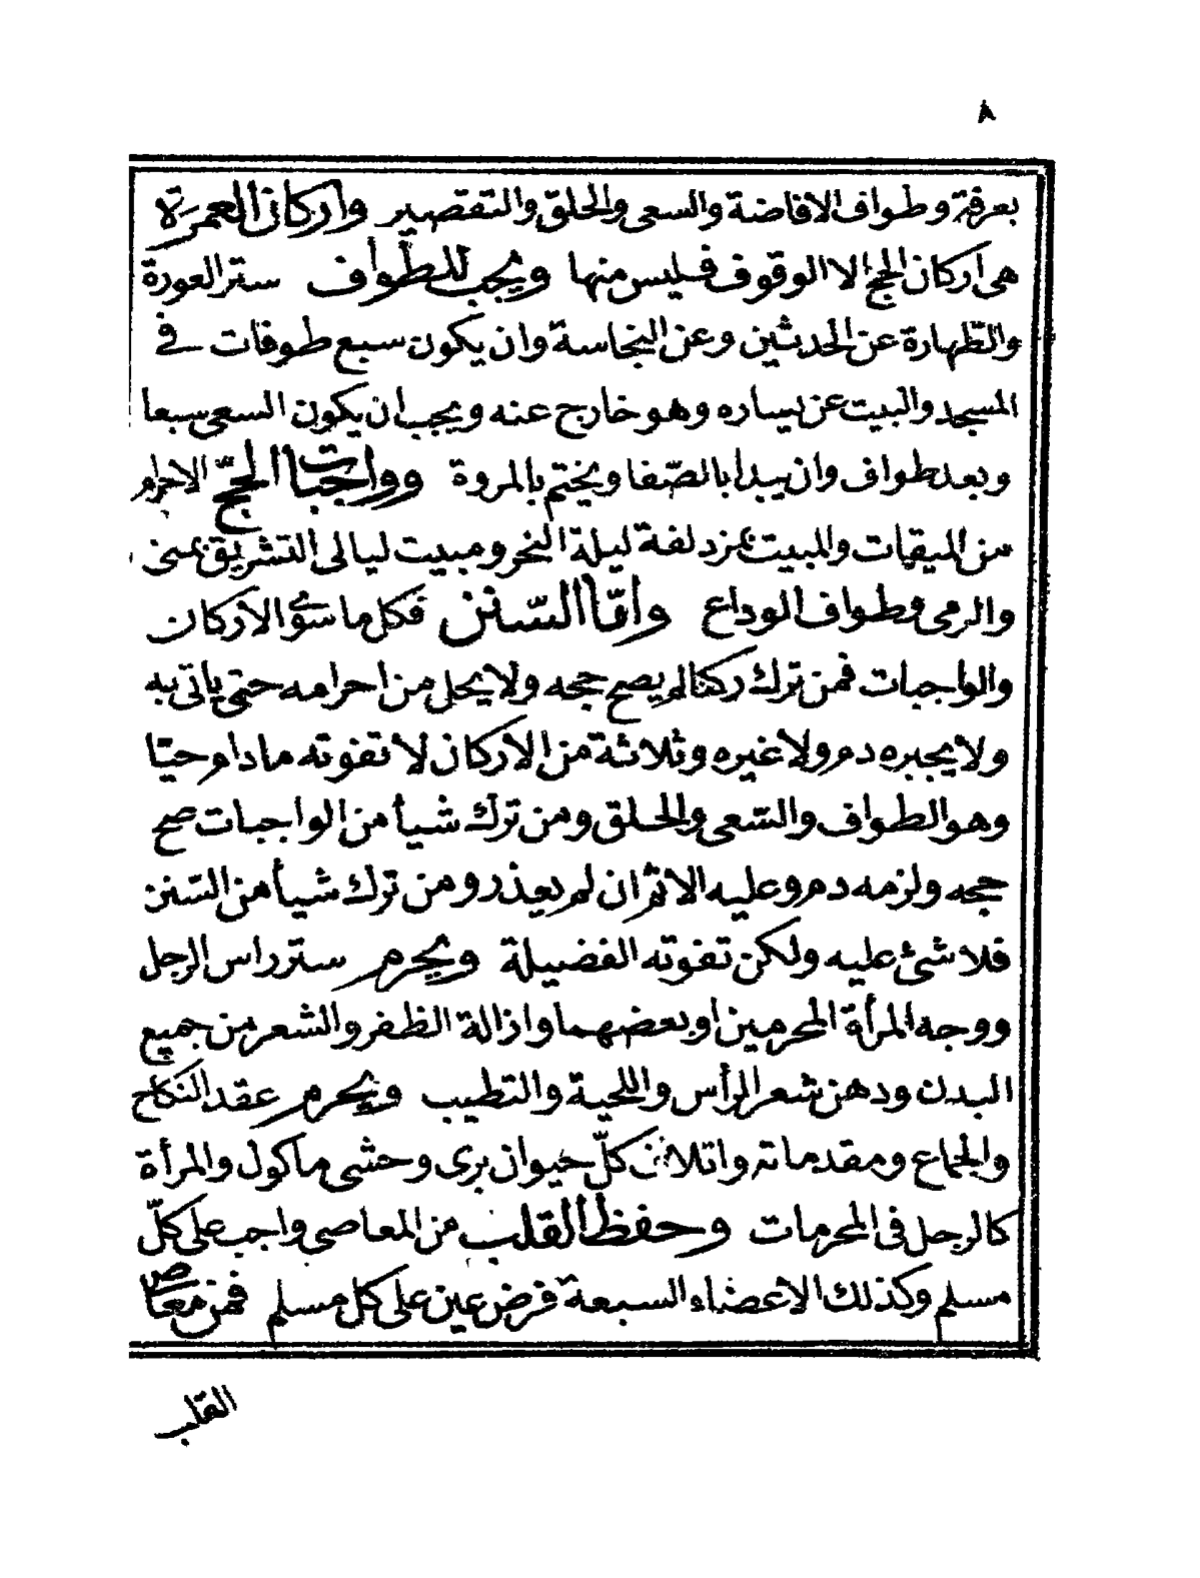 ٨
بعرفة وطواف الافاضة والسعى والحلق والتقصير واركان العمرة
هى اركان الحج الا الوقوف فليس منها ويجب للطّواف ستر العورة
والطّهارة عن الحدثين وعن النجاسة وان يكون سبع طوفات فى
المسجد والبيت عن يساره وهو خارج عنه ويجب ان يكون السعى سبعا
وبعد طواف وان يبدا بالصّفا ويختم بالمروة وواجبات الحجّ الاحرام
من الميقات والمبيت بمزدلفة ليلة النحر ومبيت ليالى التشريق بمنى
والرمى وطواف الوداع وامّا السّنن فكل ما سوى الاركان
والواجبات فمن ترك ركنا لم يصح حجه ولا يحل من احرامه حتى ياتى به
ولا يجبره دم ولا غيره وثلاثة من الاركان لا تفوته مادام حيّا
وهو الطواف والسّعى والحلق ومن ترك شيأ من الواجبات صح
حجه ولزمه دم وعليه الاثم ان لم يعذر ومن ترك شيأ من السّنن
فلا شئ عليه ولكن تفوته الفضيلة ويحرم ستر راس الرجل
ووجه المرأة المحرمين او بعضهما وازالة الظفر والشعر من جميع
البدن ودهن شعر الرأس واللحية والتطيب ويحرم عقد النكاح
والجماع ومقدماته واتلاف كلّ حيوان برى وحشى ماكول والمرأة
كالرجل فى المحرمات وحفظ القلب من المعاصى واجب على كلّ
مسلم وكذلك الاعضاء السبعة فرض عين على كل مسلم فمن معاصى
القلب